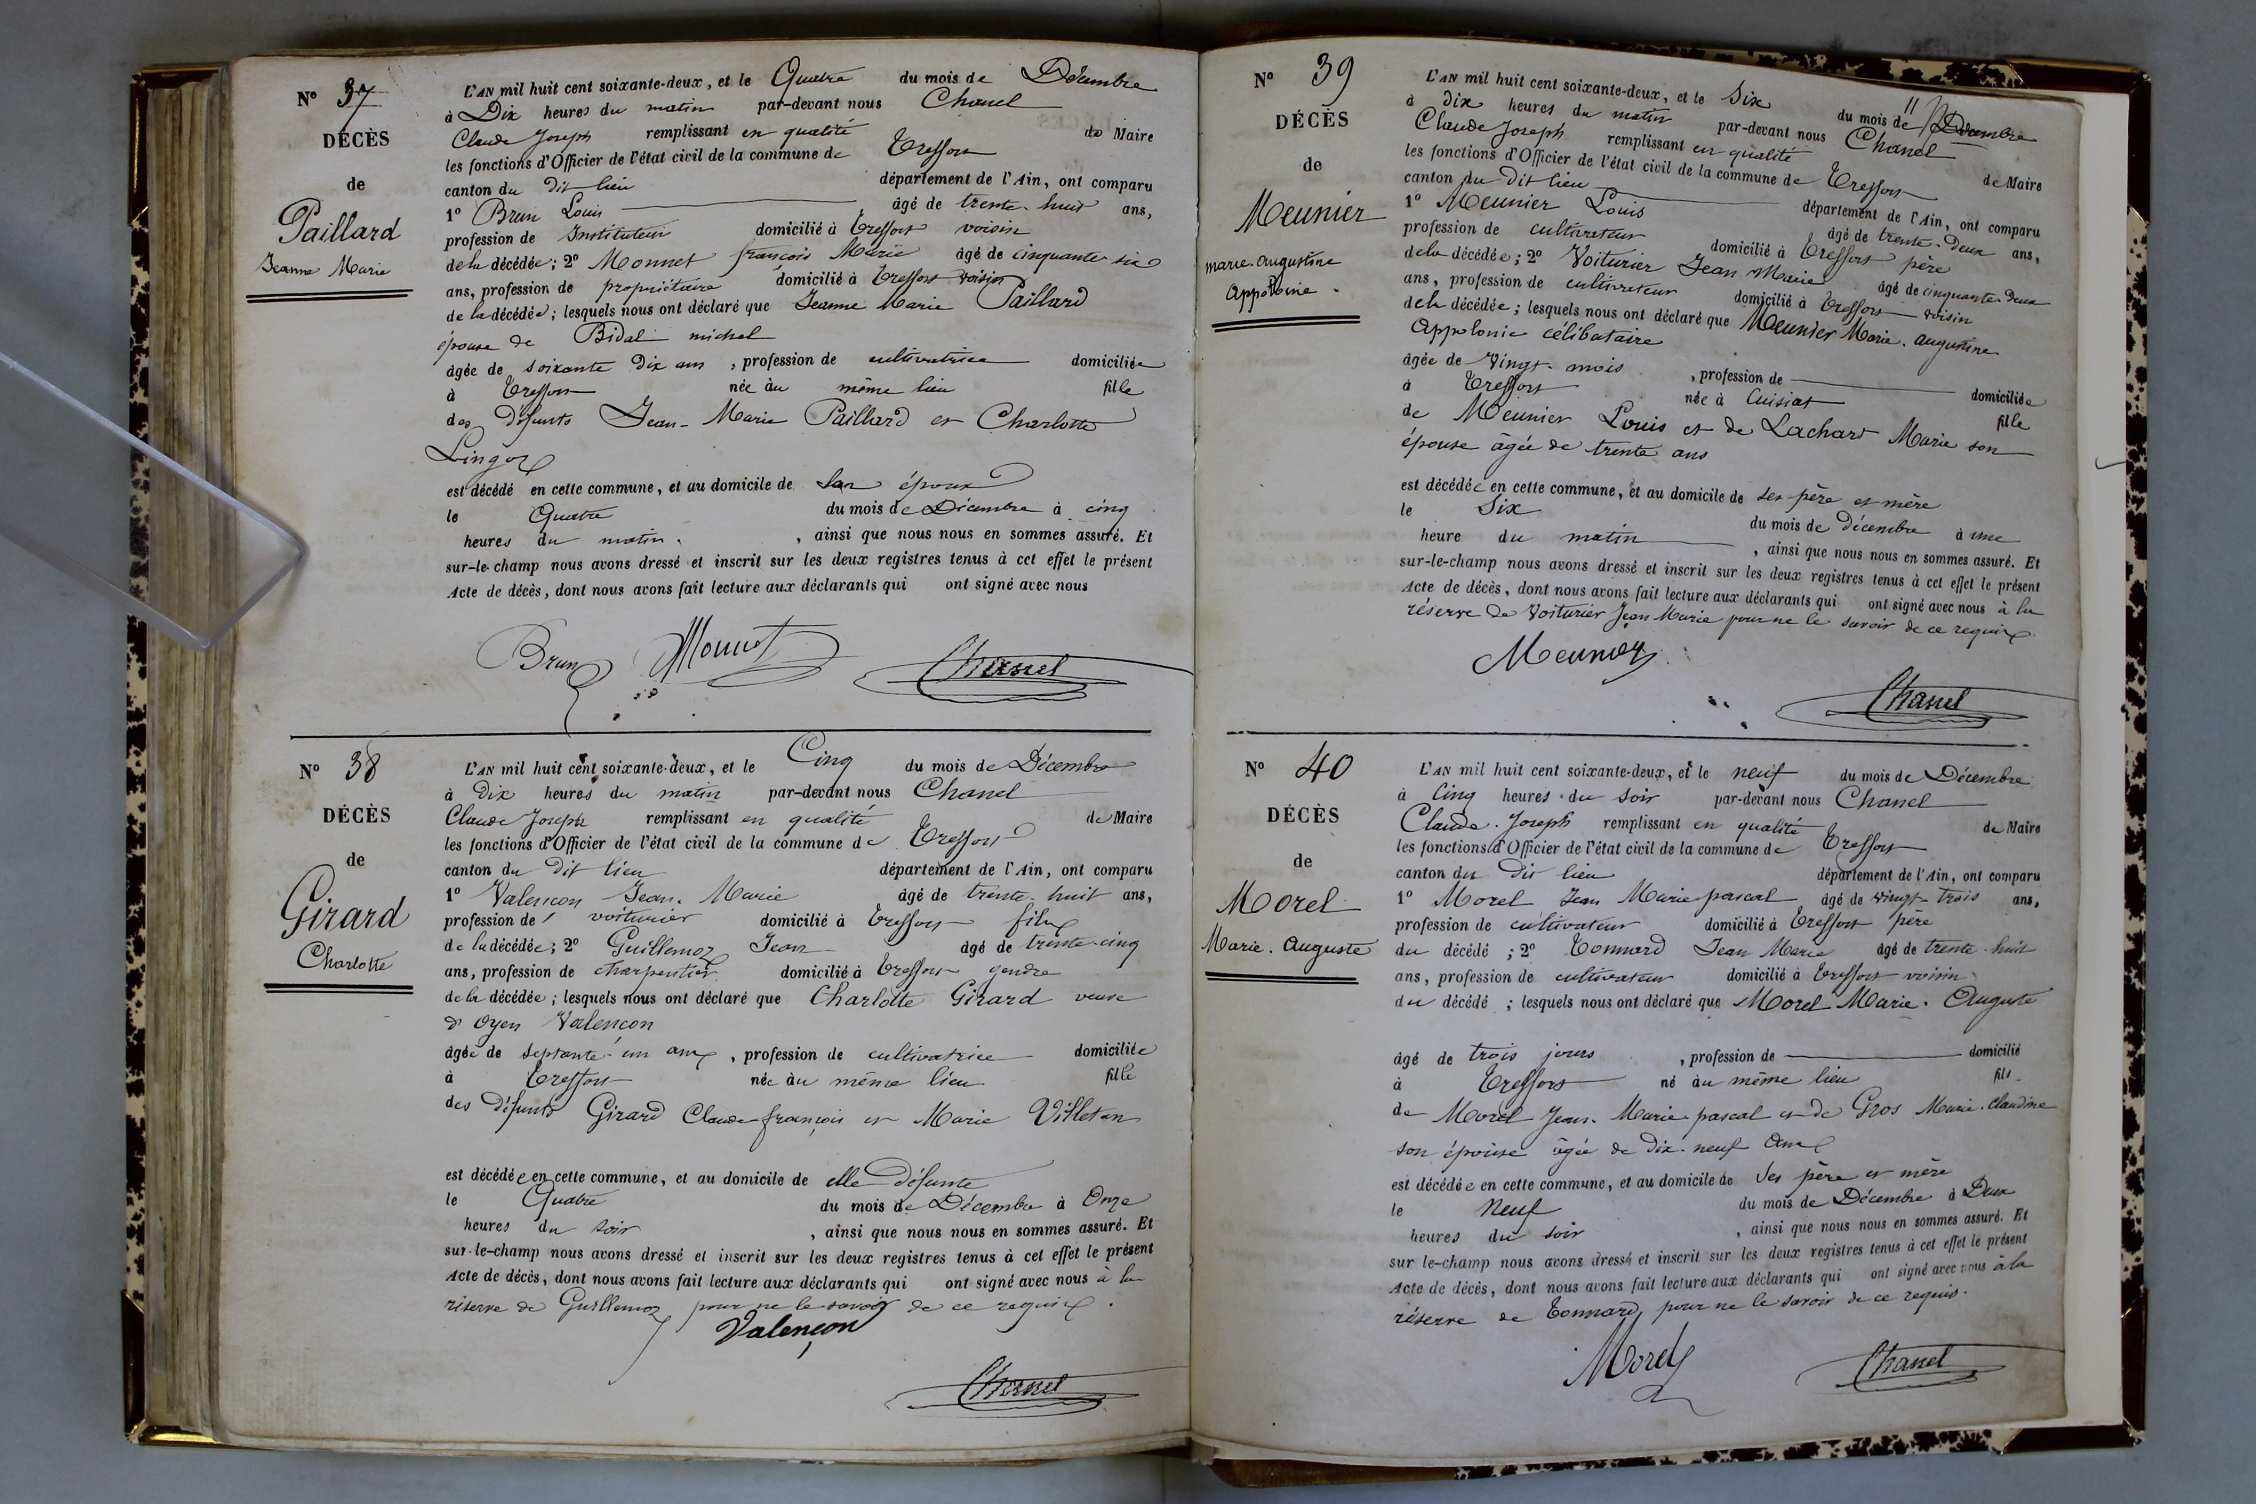 Nº 37
DÉCÈS
de
Paillard
Jeanne Marie
L'AN mil huit cent soixante-deux, et le Quatre du mois de Décembre
à Dix heures du matin par-devant nous Chanel
Claude Joseph remplissant en qualité de Maire
les fonctions d'Officier de l'état civil de la commune de Treffort
canton du dit lieu département de l'Ain, ont comparu
1º Brun Louis âgé de trente-huit ans,
profession de Instituteur domicilié à Treffort voisin
de la décédée; 2º Monnet françois Marie âgé de cinquante six
ans, profession de propriétaire domicilié à Treffort voisin
de la décédée; lesquels nous ont déclaré que Jeanne Marie Paillard
épouse de Bidal michel
âgée de soixante Dix ans, profession de cultivatrice domiciliée
à Treffort née au même lieu fille
des Défunts Jean-Marie Paillard et Charlotte
Lingoz
est décédé en cette commune, et au domicile de son époux
le Quatre du mois de Décembre à cinq
heures du matin, ainsi que nous nous en sommes assuré. Et
sur-le-champ nous avons dressé et inscrit sur les deux registres tenus à cet effet le présent
Acte de décès, dont nous avons fait lecture aux déclarants qui ont signé avec nous
Brun Monnet Chanel
Nº 38
DÉCÈS
de
Girard
Charlotte
L'AN mil huit cent soixante-deux, et le Cinq du mois de Décembre
à Dix heures du matin par-devant nous Chanel
Claude Joseph remplissant en qualité de Maire
les fonctions d'Officier de l'état civil de la commune de Treffort
canton du dit lieu département de l'Ain, ont comparu
1º Valençon Jean-Marie âgé de trente-huit ans,
profession de voiturier domicilié à Treffort fils
de la décédée; 2º Guillemoz Jean âgé de trente-cinq
ans, profession de charpentier domicilié à Treffort gendre
de la décédée; lesquels nous ont déclaré que Charlotte Girard veuve
d'Oyen Valençon
âgée de septante-un ans, profession de cultivatrice domiciliée
à Treffort née au même lieu fille
des Défunts Girard Claude-françois et Marie Villeton
est décédée en cette commune, et au domicile de elle Défunte
le Quatre du mois de Décembre à Onze
heures du soir, ainsi que nous nous en sommes assuré. Et
sur-le-champ nous avons dressé et inscrit sur les deux registres tenus à cet effet le présent
Acte de décès, dont nous avons fait lecture aux déclarants qui ont signé avec nous à la
réserve de Guillemoz pour ne le savoir de ce requis.
Valençon
Chanel
Nº 39
DÉCÈS
de
Meunier
marie-augustine
appolonie.
L'AN mil huit cent soixante-deux, et le Six du mois de Décembre
à dix heures du matin par-devant nous Chanel
Claude Joseph remplissant en qualité de Maire
les fonctions d'Officier de l'état civil de la commune de Treffort
canton du dit lieu département de l'Ain, ont comparu
1º Meunier Louis âgé de trente-Deux ans,
profession de cultivateur domicilié à Treffort père
de la décédée; 2º Voiturier Jean Marie âgé de cinquante-Deux
ans, profession de cultivateur domicilié à Treffort voisin
de la décédée; lesquels nous ont déclaré que Meunier Marie-augustine
appolonie célibataire
âgée de Vingt-mois, profession de domiciliée
à Treffort née à Cuisiat fille
de Meunier Louis et de Lachard Marie son
épouse âgée de trente ans
est décédée en cette commune, et au domicile de ses père et mère
le Six du mois de décembre à une
heure du matin, ainsi que nous nous en sommes assuré. Et
sur-le-champ nous avons dressé et inscrit sur les deux registres tenus à cet effet le présent
Acte de décès, dont nous avons fait lecture aux déclarants qui ont signé avec nous à la
réserve de Voiturier Jean Marie pour ne le savoir de ce requis
Meunier
Chanel
Nº 40
DÉCÈS
de
Morel
Marie-Auguste
L'AN mil huit cent soixante-deux, et le neuf du mois de Décembre
à Cinq heures du soir par-devant nous Chanel
Claude-Joseph remplissant en qualité de Maire
les fonctions d'Officier de l'état civil de la commune de Treffort
canton du dit lieu département de l'Ain, ont comparu
1º Morel Jean Marie pascal âgé de vingt-trois ans,
profession de cultivateur domicilié à Treffort père
du décédé; 2º Tonnard Jean Marie âgé de trente-huit
ans, profession de cultivateur domicilié à Treffort voisin
du décédé; lesquels nous ont déclaré que Morel Marie-Auguste
âgé de trois jours, profession de domicilié
à Treffort né au même lieu fils
de Morel Jean-Marie pascal et de Gros Marie-Claudine
son épouse âgée de Dix-neuf Ans
est décédée en cette commune, et au domicile de Ses père et mère
le Neuf du mois de Décembre à Deux
heures du soir, ainsi que nous nous en sommes assuré. Et
sur-le-champ nous avons dressé et inscrit sur les deux registres tenus à cet effet le présent
Acte de décès, dont nous avons fait lecture aux déclarants qui ont signé avec nous à la
réserve de Tonnard, pour ne le savoir de ce requis.
Morel
Chanel